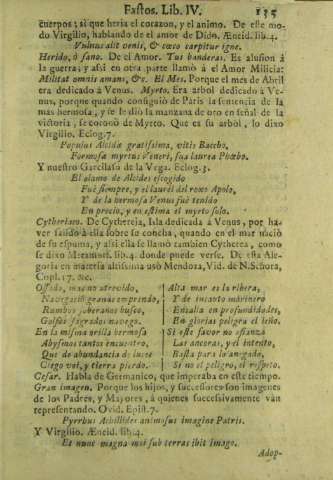 Fastos. Lib. IV. 135
cuerpos; si que heria el corazon, y el animo. De elle mo-
do Virgilio, hablando de el amor de Dido. Æneid. lib.4.
Vulnus alit venis, & cæco carpitur igne.
Herido, ò sano. De el Amor. Tus banderas. Es alusion à
la guerra; y assi en otra parte llamò à el Amor Milicia:
Militat omnis amans, &c. El Mes. Porque el mes de Abril
era dedicado à Venus. Myrto. Era arbol dedicado à Ve-
nus, porque quando consiguiò de Paris la sentencia de la
mas hermosa, y se le diò la manzana de oro en señal de la
victoria; se coronò de Myrto. Que es su arbol, lo dixo
Virgilio. Eclog.7.
Populus Alcidæ gratissima, vitis Baccho,
Formosæ myrtus Veneri, sua laurea Phœbo.
Y nuestro Garcilaso de la Vega. Eclog.3.
El alamo de Alcides escogido
Fuè siempre, y el laurel del roxo Apolo,
Y de la hermosa Venus fuè tenido
En precio, y en estima el myrto solo.
Cytheream. De Cythereia, Isla dedicada à Venus, por ha-
ver salido à ella sobre su concha, quando en el mar naciò
de su espuma, y assi ella se llamò tambien Cytherea, como
se dixo lib.4. donde puede verse. De esta Ale-
goria en materia altissima usò Mendoza, Vid. de N. Señora,
Copl.17. &c.
Ossado, mas no atrevido,
Navegaciò gran emprendo,
Rumbos soberanos busco,
Golfos sagrados navego.
En la misma orilla hermosa
Abysmos tantos encuentro,
Que de abundancia de luzes
Ciego voi, y tierra pierdo.
Alta mar es la ribera,
Y de incauto marinero
Encalla en profundidades,
En glorias peligra el leño.
Si este favor no afianza
Las ancoras, y el intento,
Basta para lo
Si no el peligro, el respeto.
Cesar. Habla de Germanico, que imperaba en este tiempo.
Gran imagen. Porque los hijos, y successores son imagenes
de los Padres, y Mayores, à quienes successivamente vàn
representando. Ovid. Epist.7.
Pyrrhus Achillides animosus imagine Patris.
Y Virgilio. Æneid. lib.4.
Et nunc magna mei sub terras ibit imago.
Adop-